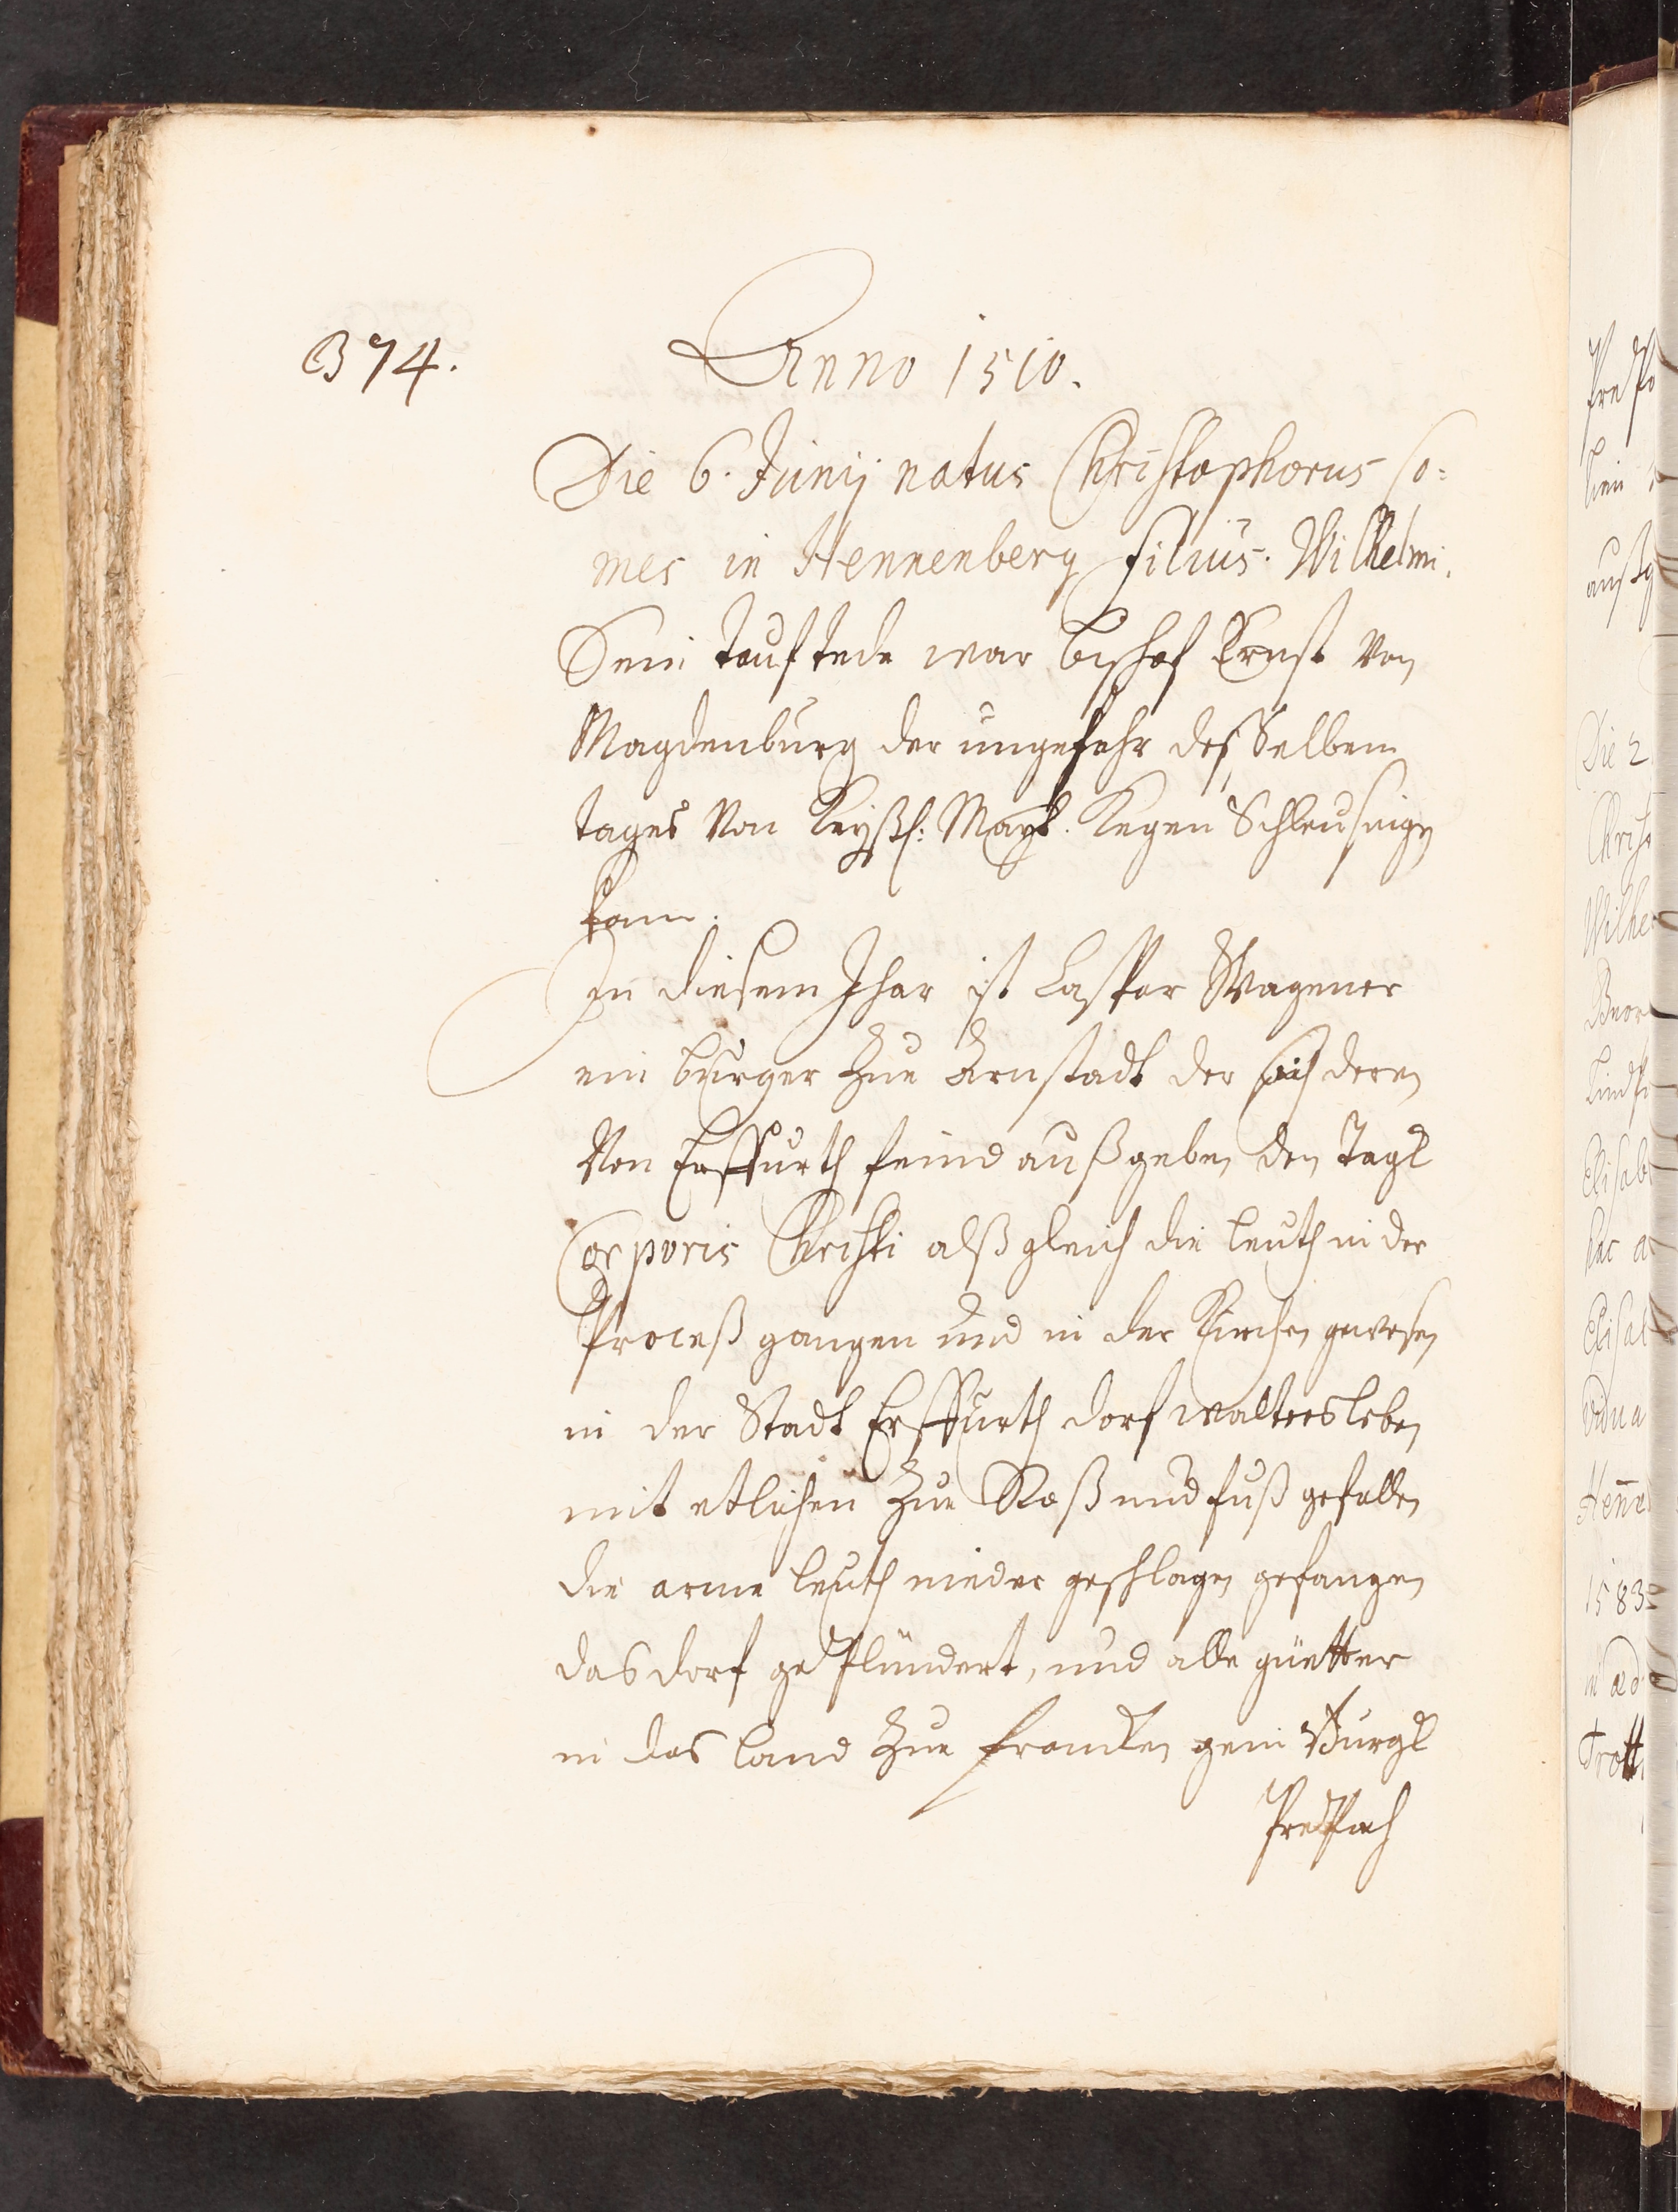 B 74.
Anno 1510.
Die 6. Junij natus Christophorus Co=
mes in Hennenberg filius. Wilhelmi.
Sein tauf tede war bischof Ernst von
Magdenburg der ungefehr desselben
tages von Keyßl: Mayt. kegen Schleusinge
kam.
In diesem Jhar ist Caspar Wagener
ein burger zue Arnstadt der sich deren
von Erffurth feind außgeben den Tagk
Corporis Christi alß gleich die leuth in der
Proceß gangen und in der Kirchen gewesen
in der Stadt Erffurth dorf waltersleben
mit etlichen zue Roß und fuß gefallen
die arme leuth nieder geschlagen gefangen
das dorf geplündert, und alle güetter
in das land zue francken gein Burgk
Prespach
Prespa
außg
Die 2
Christ
Wilhe
Elisab
hac a
Elisa
vidua
Henne
1583
in æd
Trott